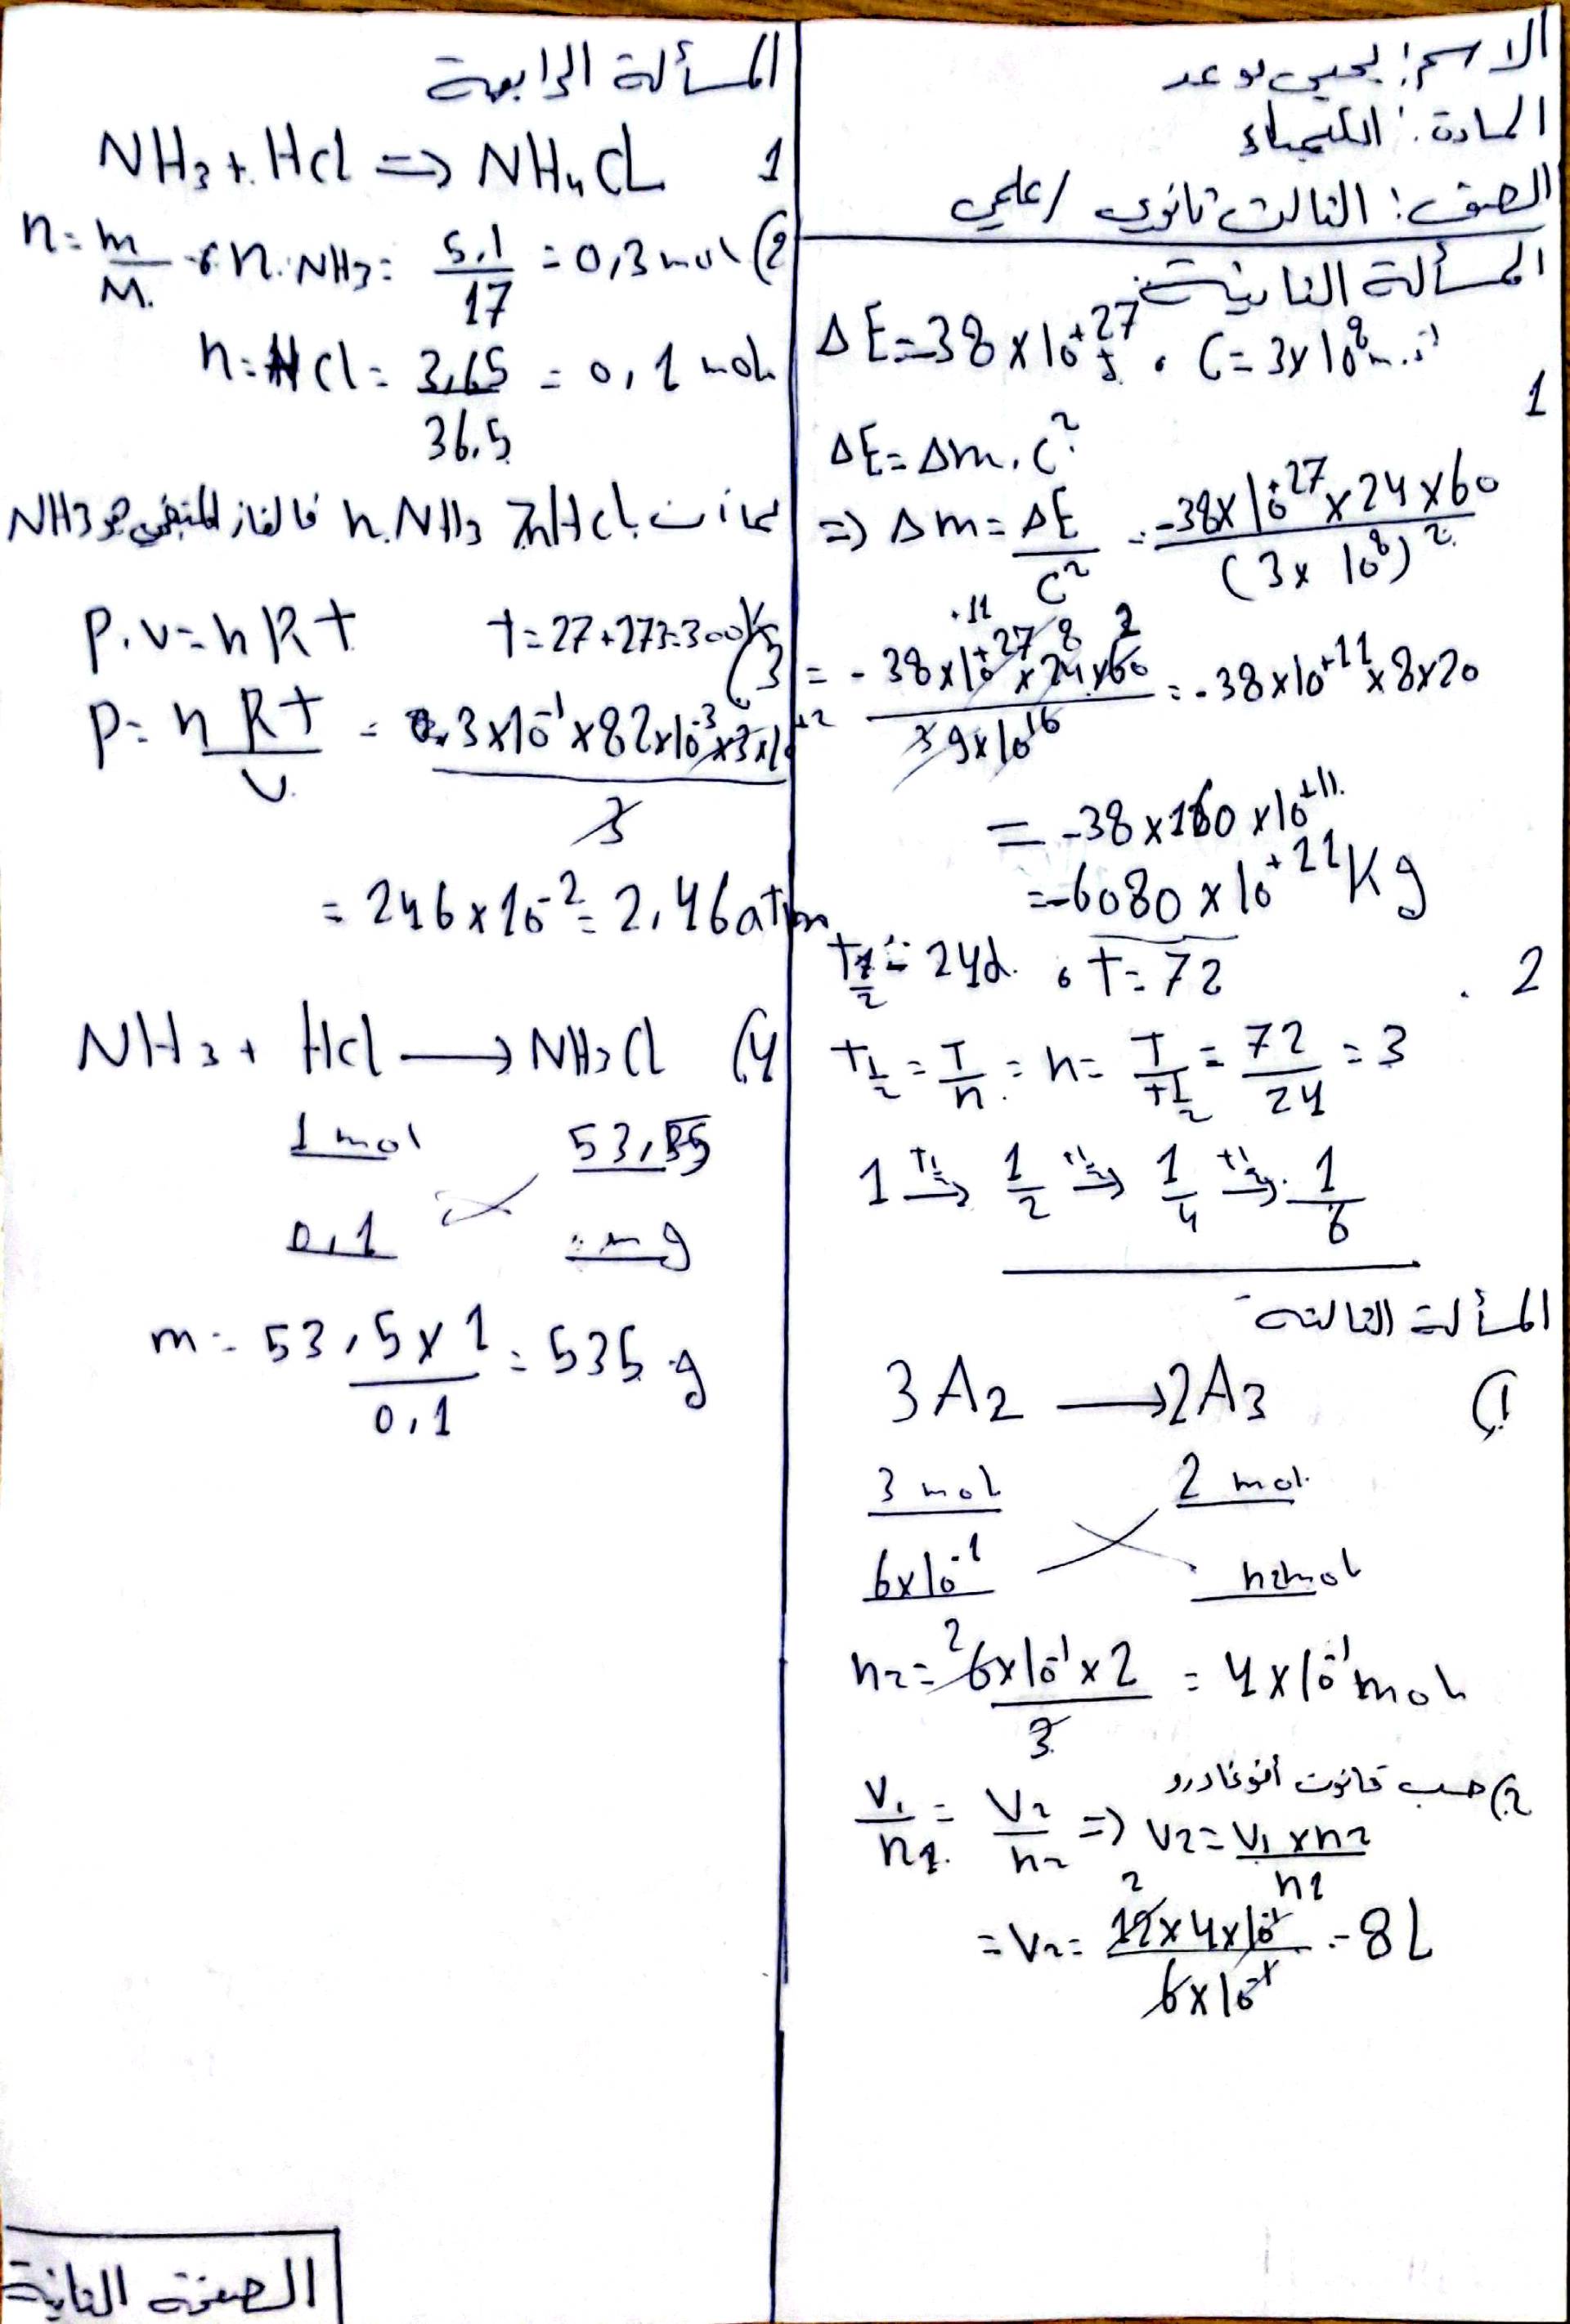 الاسم: يحيى بوعد
المادة: الكيمياء
الصف: الثالث ثانوي / علمي
المسألة الثانية:
ΔE = -38 × 10⁺²⁷ J ، C = 3 × 10⁸ m.s⁻¹
1
ΔE = Δm . C²
⇒ Δm = ΔE / C² = -38 × 10⁺²⁷ × 24 × 60 / (3 × 10⁸)²
= -38 × 10⁺²⁷ × 24 × 60 / 9 × 10¹⁶ = -38 × 10⁺¹¹ × 8 × 20
= -38 × 160 × 10⁺¹¹
= -6080 × 10⁺¹¹ Kg
2
t½ = 24d ، T = 72
t½ = T/n = n = T/t½ = 72/24 = 3
1 →(t½) 1/2 →(t½) 1/4 →(t½) 1/8
المسألة الثالثة
1) 3A2 → 2A3
3 mol 2 mol
6×10⁻¹ n2 mol
n2 = 6×10⁻¹ × 2 / 3 = 4 × 10⁻¹ mol
2) حسب قانون أفوغادرو
V1/n1 = V2/n2 ⇒ V2 = V1 × n2 / n1
= V2 = 12 × 4 × 10⁻¹ / 6 × 10⁻¹ = 8 L
المسألة الرابعة
1 NH3 + HCl ⇒ NH4CL
2) n = m/M ، n.NH3 = 5.1/17 = 0,3 mol
n = HCl = 3,65/36.5 = 0,1 mol
بما أن n.NH3 > nHCl فالغاز المتبقي هو NH3
3) P.V = nRt t = 27 + 273 = 300K
P = nRt/V = 3×10⁻¹ × 82×10⁻³ × 3×10⁺² / 3
= 246 × 10⁻² = 2,46 atm
4) NH3 + HCl → NH3Cl
1 mol 53,5
0,1 m g
m = 53,5 × 1 / 0,1 = 535 g
الصفحة الثانية